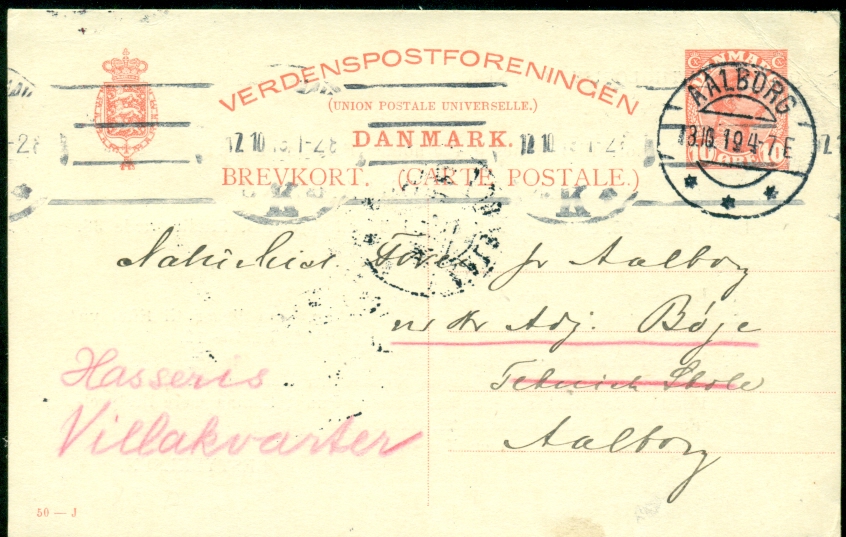 VERDENSPOSTFORENINGEN
(UNION POSTALE UNIVERSELLE.)
DANMARK.
BREVKORT. (CARTE POSTALE.)
DANMARK
10 10
AALBORG
13.10.19 4-7 E
12 10 19 1-2
12 10 1-2
K K
Foren for Aalborg
Adj. Böje
Teknisk Skole
Aalborg
Hasseris
Villakvarter
50 — J